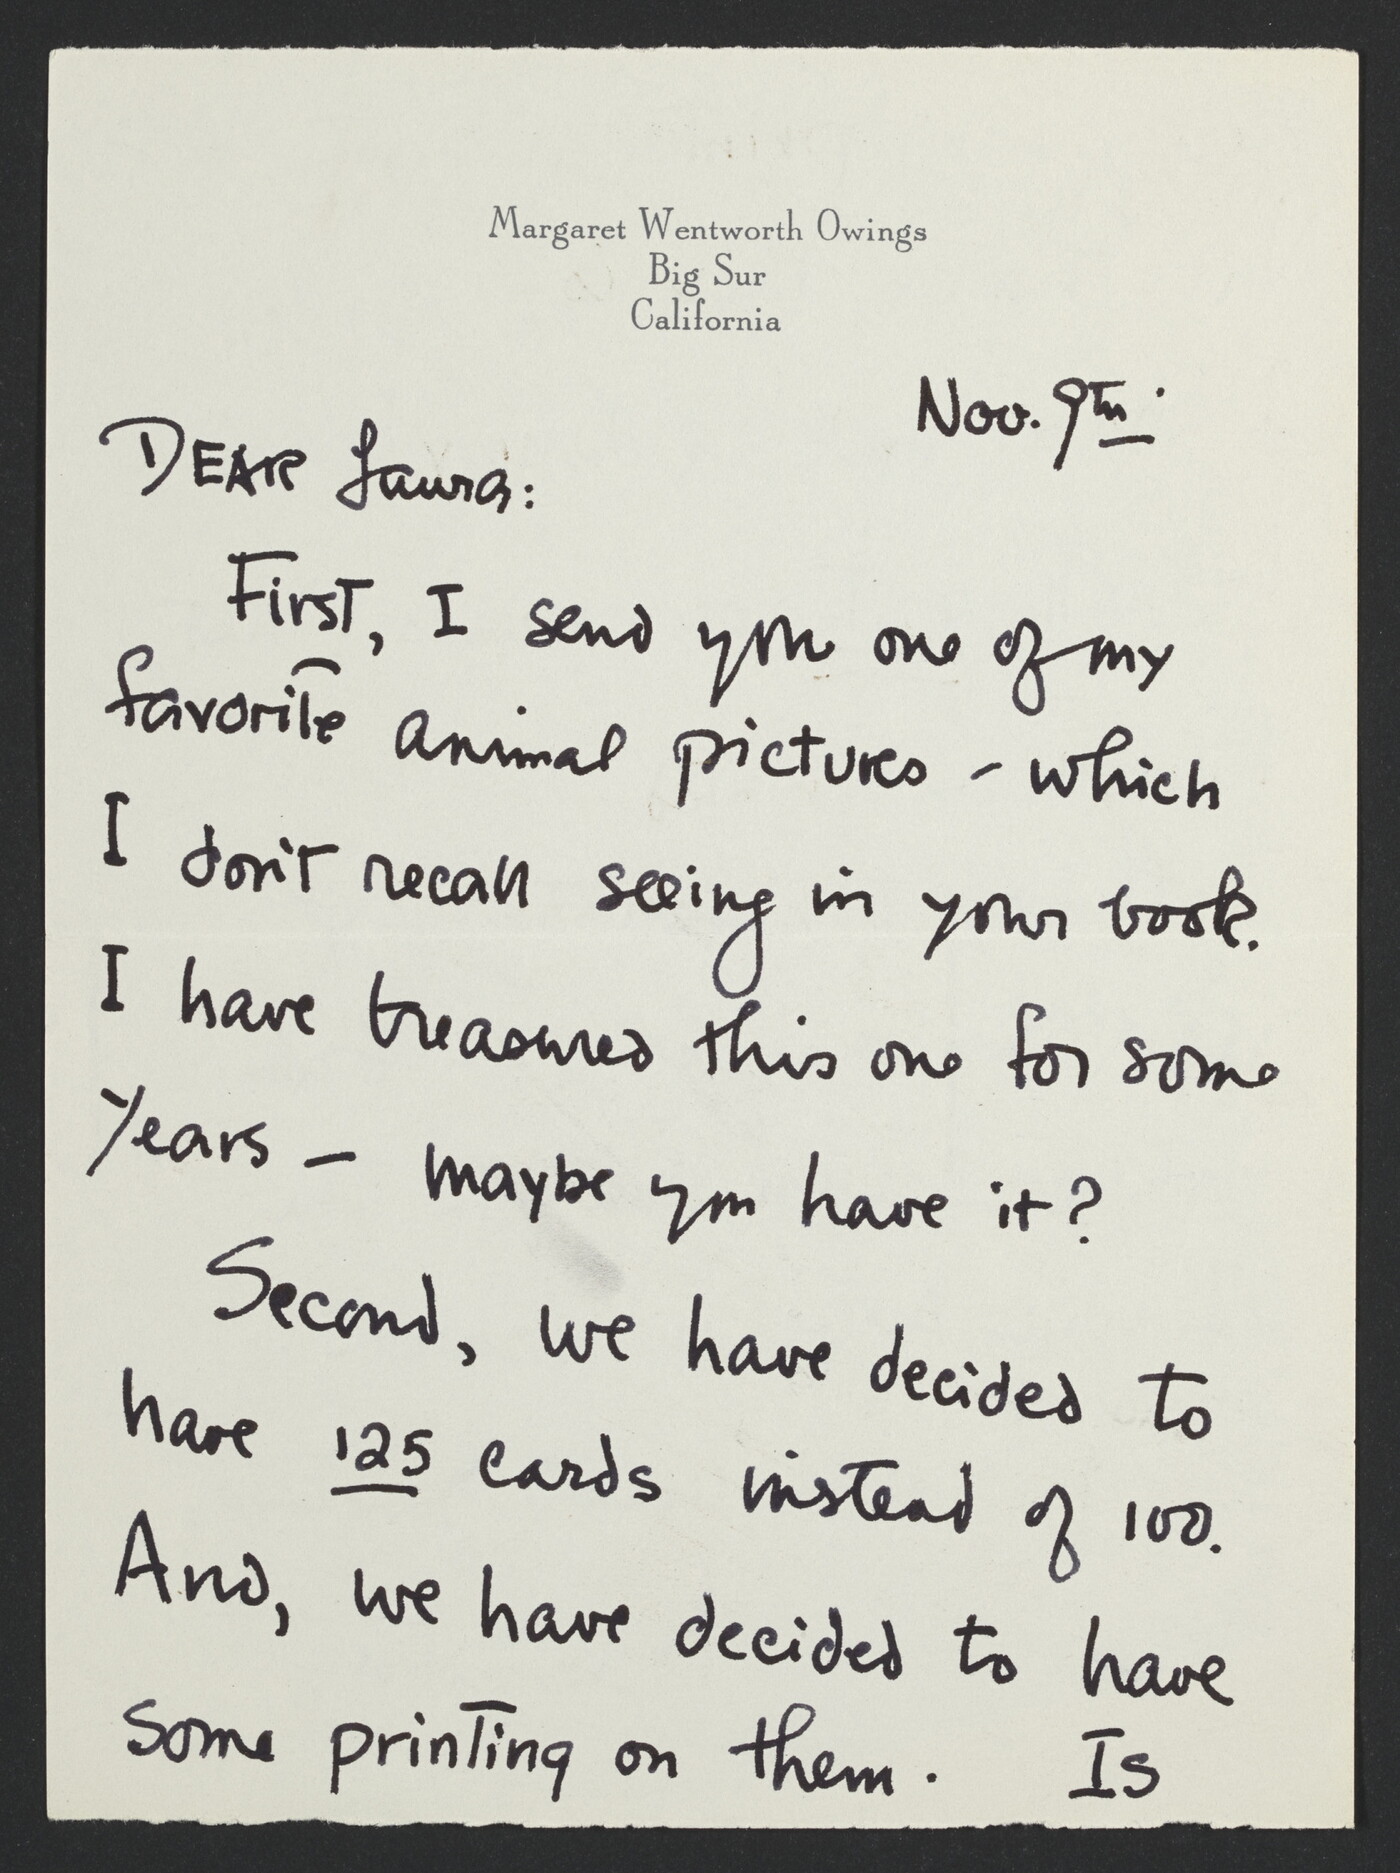 Margaret Wentworth Owings
Big Sur
California
Nov. 9th.
DEAR Laura:
First, I send you one of my
favorite animal pictures - which
I don't recall seeing in your book.
I have treasured this one for some
years - maybe you have it?
Second, we have decided to
have 125 cards instead of 100.
And, we have decided to have
some printing on them. Is